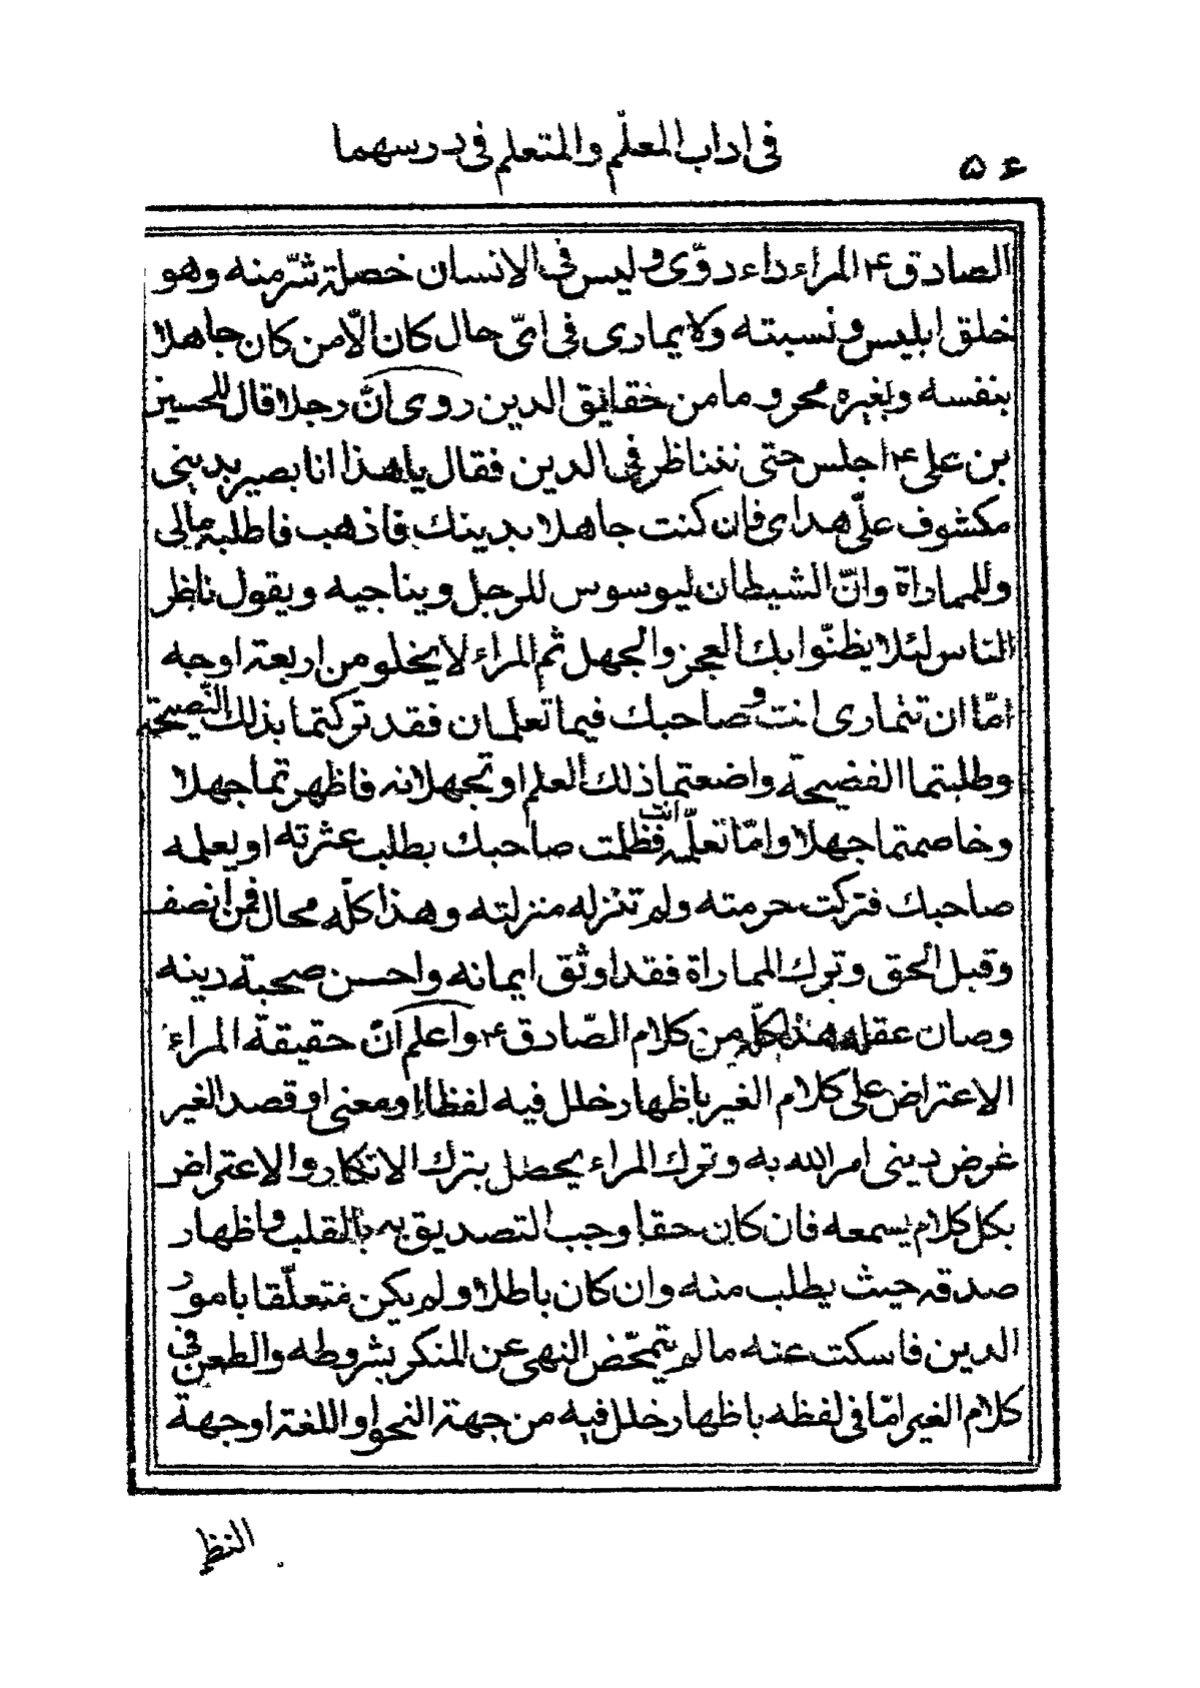 في اداب المعلّم والمتعلم في درسهما
۵۶
الصادق ع المراء داء دوّى وليس في الانسان خصلة شرّ منه وهو
خلق ابليس ونسبته ولا يمارى في اىّ حال كان الّا من كان جاهلا
بنفسه وبغيره محروما من حقايق الدين روى انّ رجلا قال للحسين
بن على ع اجلس حتى نتناظر في الدين فقال يا هذا انا بصير بدينى
مكشوف علّى هداى فان كنت جاهلا بدينك فاذهب فاطلبه مالى
وللمماراة وانّ الشيطان ليوسوس للرجل ويناجيه ويقول ناظر
الناس لئلا يظنّوا بك العجز والجهل ثم المراء لا يخلو من اربعة اوجه
امّا ان تتمارى انت وصاحبك فيما تعلمان فقد تركتما بذلك النّصيحة
وطلبتما الفضيحة واضعتما ذلك العلم او تجهلانه فاظهرتما جهلا
وخاصمتما جهلا وامّا تعلّمه انت فظلمت صاحبك بطلب عثرته او يعلمه
صاحبك فتركت حرمته ولم تنزله منزلته وهذا كلّه محال فمن انصف
وقبل الحق وترك المماراة فقد اوثق ايمانه واحسن صحبة دينه
وصان عقله هذا كلّه من كلام الصّادق ع واعلم انّ حقيقة المراء
الاعتراض على كلام الغير باظهار خلل فيه لفظا او معنى او قصد الغير
غرض دينى امر الله به وترك المراء يحصل بترك الانكار والاعتراض
بكل كلام يسمعه فان كان حقا وجب التصديق به بالقلب واظهار
صدقه حيث يطلب منه وان كان باطلا ولم يكن متعلّقا بامور
الدين فاسكت عنه مالم يتمحّض النهى عن المنكر بشروطه والطعن في
كلام الغير امّا في لفظه باظهار خلل فيه من جهة النحو او اللغة او جهة
النظم